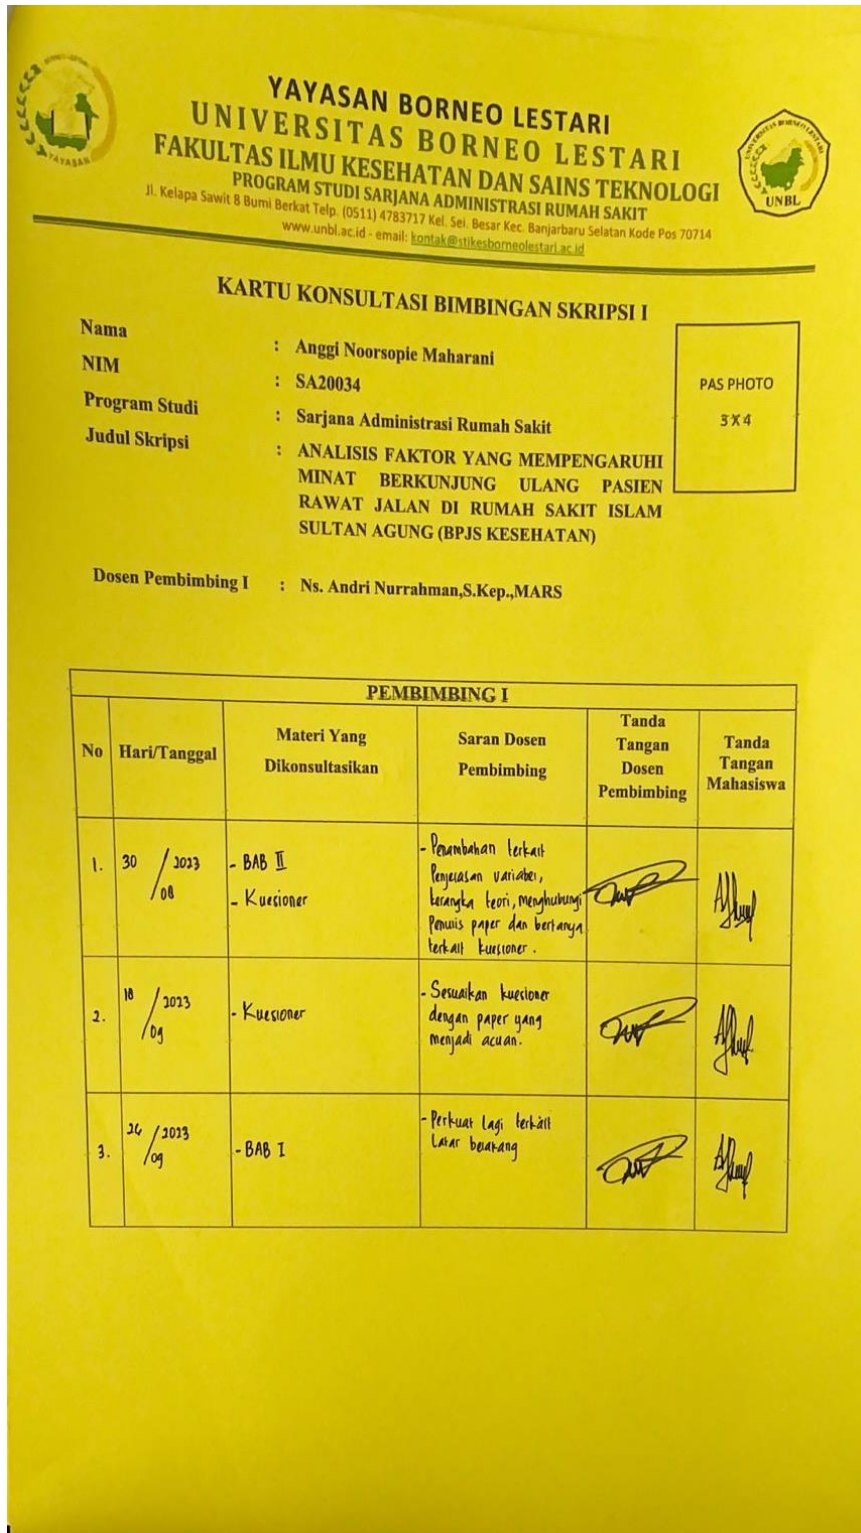 YAYASAN BORNEO LESTARI
UNIVERSITAS BORNEO LESTARI
FAKULTAS ILMU KESEHATAN DAN SAINS TEKNOLOGI
PROGRAM STUDI SARJANA ADMINISTRASI RUMAH SAKIT
Jl. Kelapa Sawit 8 Bumi Berkat Telp. (0511) 4783717 Kel. Sei. Besar Kec. Banjarbaru Selatan Kode Pos 70714
www.unbl.ac.id - email: kontak@stikesborneolestari.ac.id
YAYASAN
UNIVERSITAS BORNEO LESTARI
UNBL
KARTU KONSULTASI BIMBINGAN SKRIPSI I
Nama : Anggi Noorsopie Maharani
NIM : SA20034
Program Studi : Sarjana Administrasi Rumah Sakit
Judul Skripsi : ANALISIS FAKTOR YANG MEMPENGARUHI
MINAT BERKUNJUNG ULANG PASIEN
RAWAT JALAN DI RUMAH SAKIT ISLAM
SULTAN AGUNG (BPJS KESEHATAN)
PAS PHOTO
3 X 4
Dosen Pembimbing I : Ns. Andri Nurrahman,S.Kep.,MARS
PEMBIMBING I
No
Hari/Tanggal
Materi Yang
Dikonsultasikan
Saran Dosen
Pembimbing
Tanda
Tangan
Dosen
Pembimbing
Tanda
Tangan
Mahasiswa
1.
30 / 08 / 2023
- BAB II
- Kuesioner
- Penambahan terkait
Penjelasan variabel,
kerangka teori, menghubungi
Penulis paper dan bertanya
terkait kuesioner.
2.
18 / 09 / 2023
- Kuesioner
- Sesuaikan kuesioner
dengan paper yang
menjadi acuan.
3.
/ 09 / 2023
- BAB I
- Perkuat lagi terkait
Latar belakang